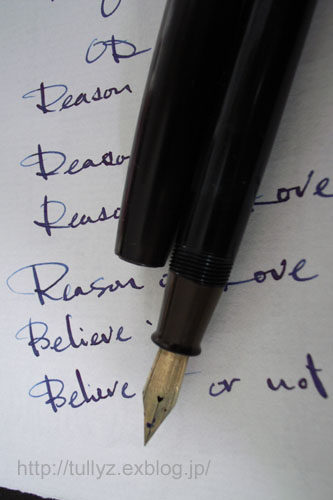 OR
Reason
Reason
Reason Love
Reason Love
Believe
Believe or not
http://tullyz.exblog.jp/